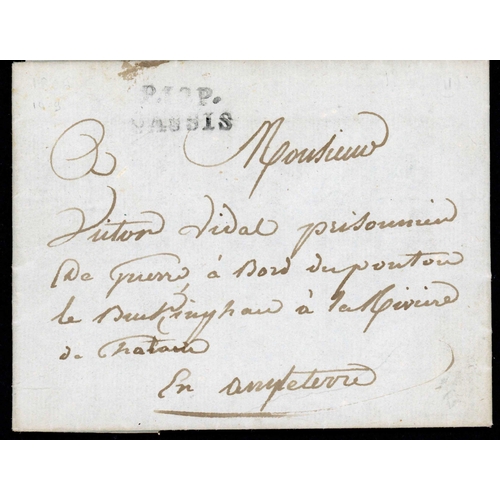 P.12P.
CASSIS
A Monsieur
Victor Vidal prisonnier
De Guerre à Bord du ponton
le Buckingham à la Rivière
de Chatam
En angleterre